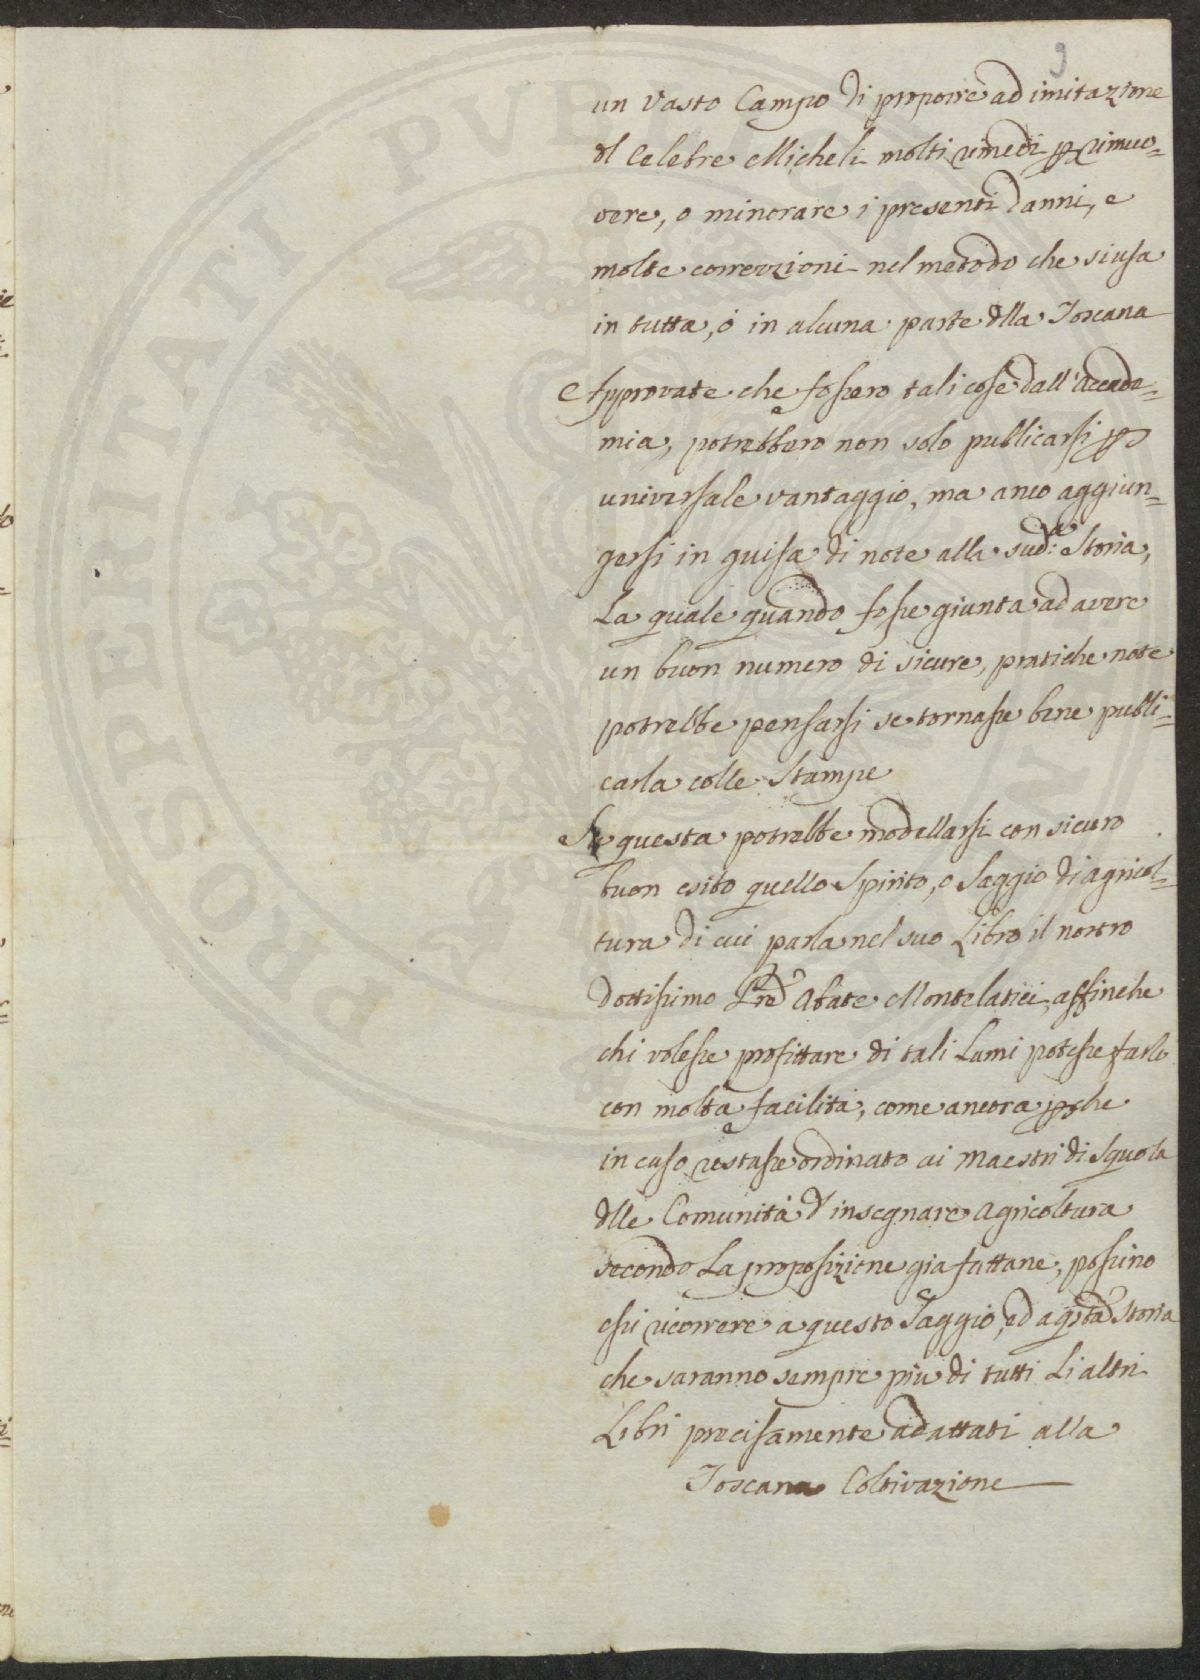 9
un vasto Campo di proporre ad imitazione
dl Celebre Micheli molti rimedi p rimuo=
vere, o minorare i presenti danni, e
molte correzzioni nel metodo che si usa
in tutta, ó in alcuna parte dlla Toscana
Approvate che fossero tali cose dall'Accade=
mia, potrebbero non solo publicarsi p
universale vantaggio, ma anco aggiun=
gersi in guisa di note alla sud:a Storia,
La quale quando fosse giunta ad avere
un buon numero di sicure, pratiche note
potrebbe pensarsi se tornasse bene publi=
carla colle Stampe
Su questa potrebbe modellarsi con sicuro
buon esito quello Spirito, o Saggio di agricol=
tura di cui parla nel suo Libro il nostro
dottissimo Pre Abate Montelatici, affinche
chi volesse profittare di tali Lumi potesse farlo
con molta facilità, come ancora pche
in caso restasse ordinato ai Maestri di Squola
dlle Comunità d'insegnare Agricoltura
secondo La proposizione gia fattane, possino
essi ricorrere a questo Saggio, ed a qsta Storia
che saranno sempre piu di tutti Li altri
Libri precisamente adattati alla
Toscana Coltivazione
PROSPERITATI PVBLICAE